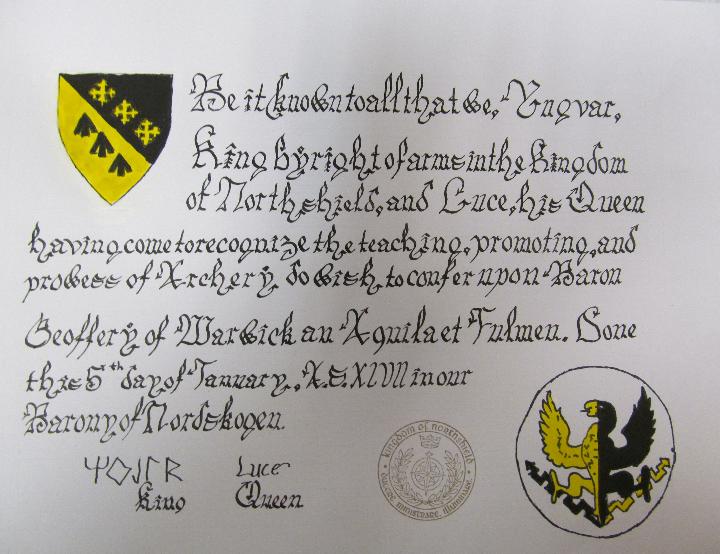 Be it known to all that we, Yngvar,
King by right of arms in the Kingdom
of Northshield, and Luce, his Queen
having come to recognize the teaching, promoting, and
prowess of Archery do wish to confer upon Baron
Geoffery of Warwick an Aquila et Fulmen. Done
this 5th day of January, A.S. XLVII in our
Barony of Nordskogen.
Luce
King Queen
Kingdom of Northshield